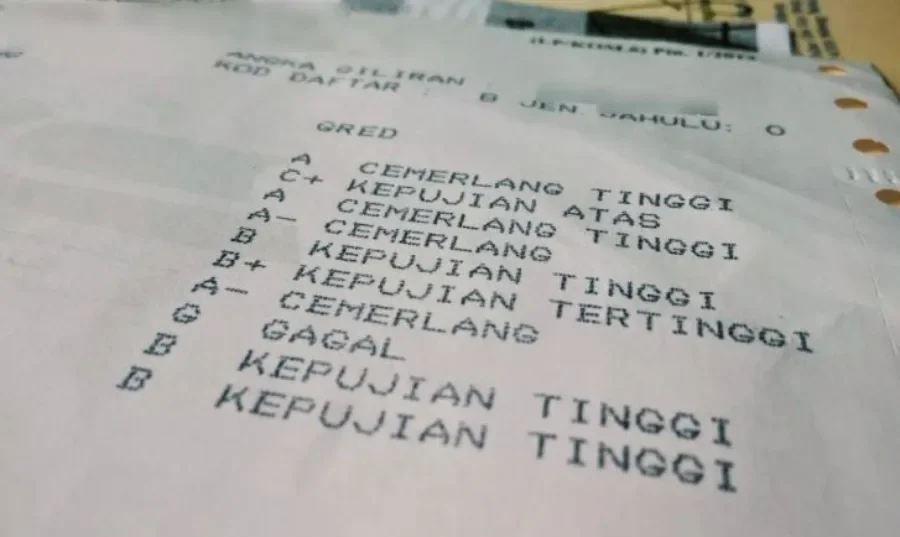 ANGKA GILIRAN
KOD DAFTAR : B JEN DAHULU: 0
GRED
A CEMERLANG TINGGI
C+ KEPUJIAN ATAS
A CEMERLANG TINGGI
A- CEMERLANG
B KEPUJIAN TINGGI
B+ KEPUJIAN TERTINGGI
A- CEMERLANG
G GAGAL
B KEPUJIAN TINGGI
B KEPUJIAN TINGGI